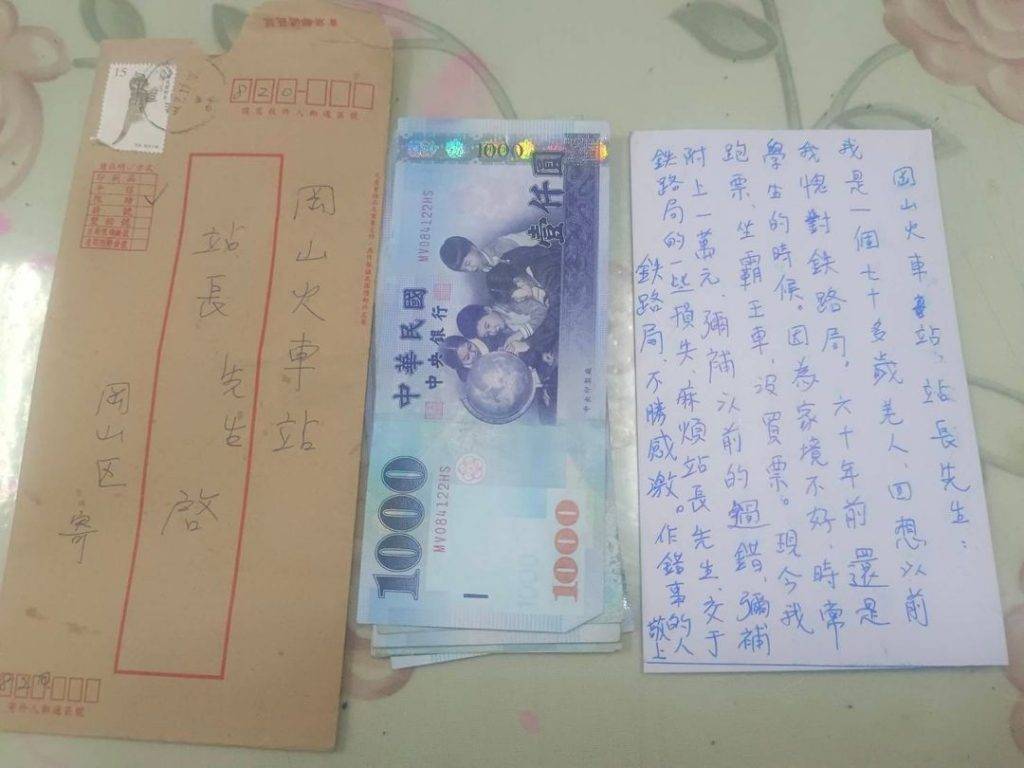 15
820
請寫收件人郵遞區號
岡山火車站
站長 先生 啟
岡山区
寄
820
寄件人郵遞區號
1000
壹仟圓
MV084122HS
中華民國
中央銀行
中央印製廠
1000
MV084122HS
1000
岡山火車站、站長先生:
我是一個七十多歲老人、回想以前
我愧對鉄路局。六十年前還是
學生的時候。因為家境不好,時常
跑票、坐霸王車,沒買票。現今我
附上一萬元,彌補以前的過錯,彌補
鉄路局的一些損失、麻煩站長先生、交于
鉄路局、不勝感激。作錯事的人
敬上